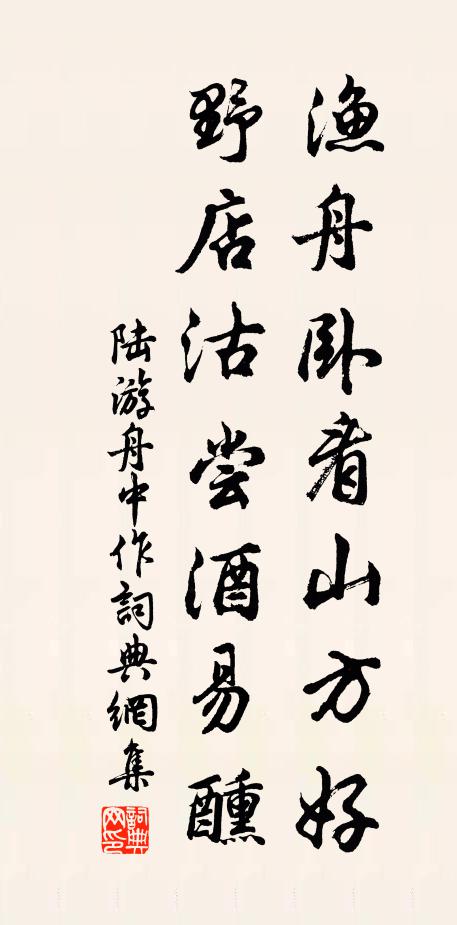 渔舟卧看山方好
野店沽尝酒易醺
陆游舟中作詞典網集
詞典网印